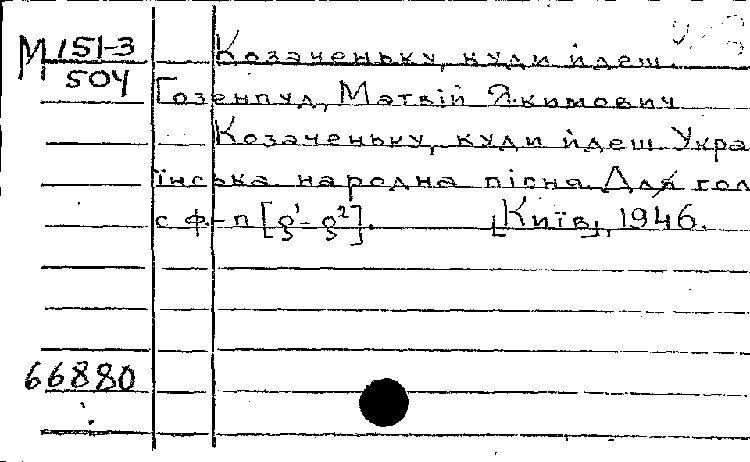 М 151-3 Козаченьку, куди йдеш.
504
Гозенпуд, Матвій Якимович
Козаченьку, куди йдеш. Укра
їнська народна пісня. Для гол
с ф.-п [g¹-g²]. [Київ], 1946.
66880